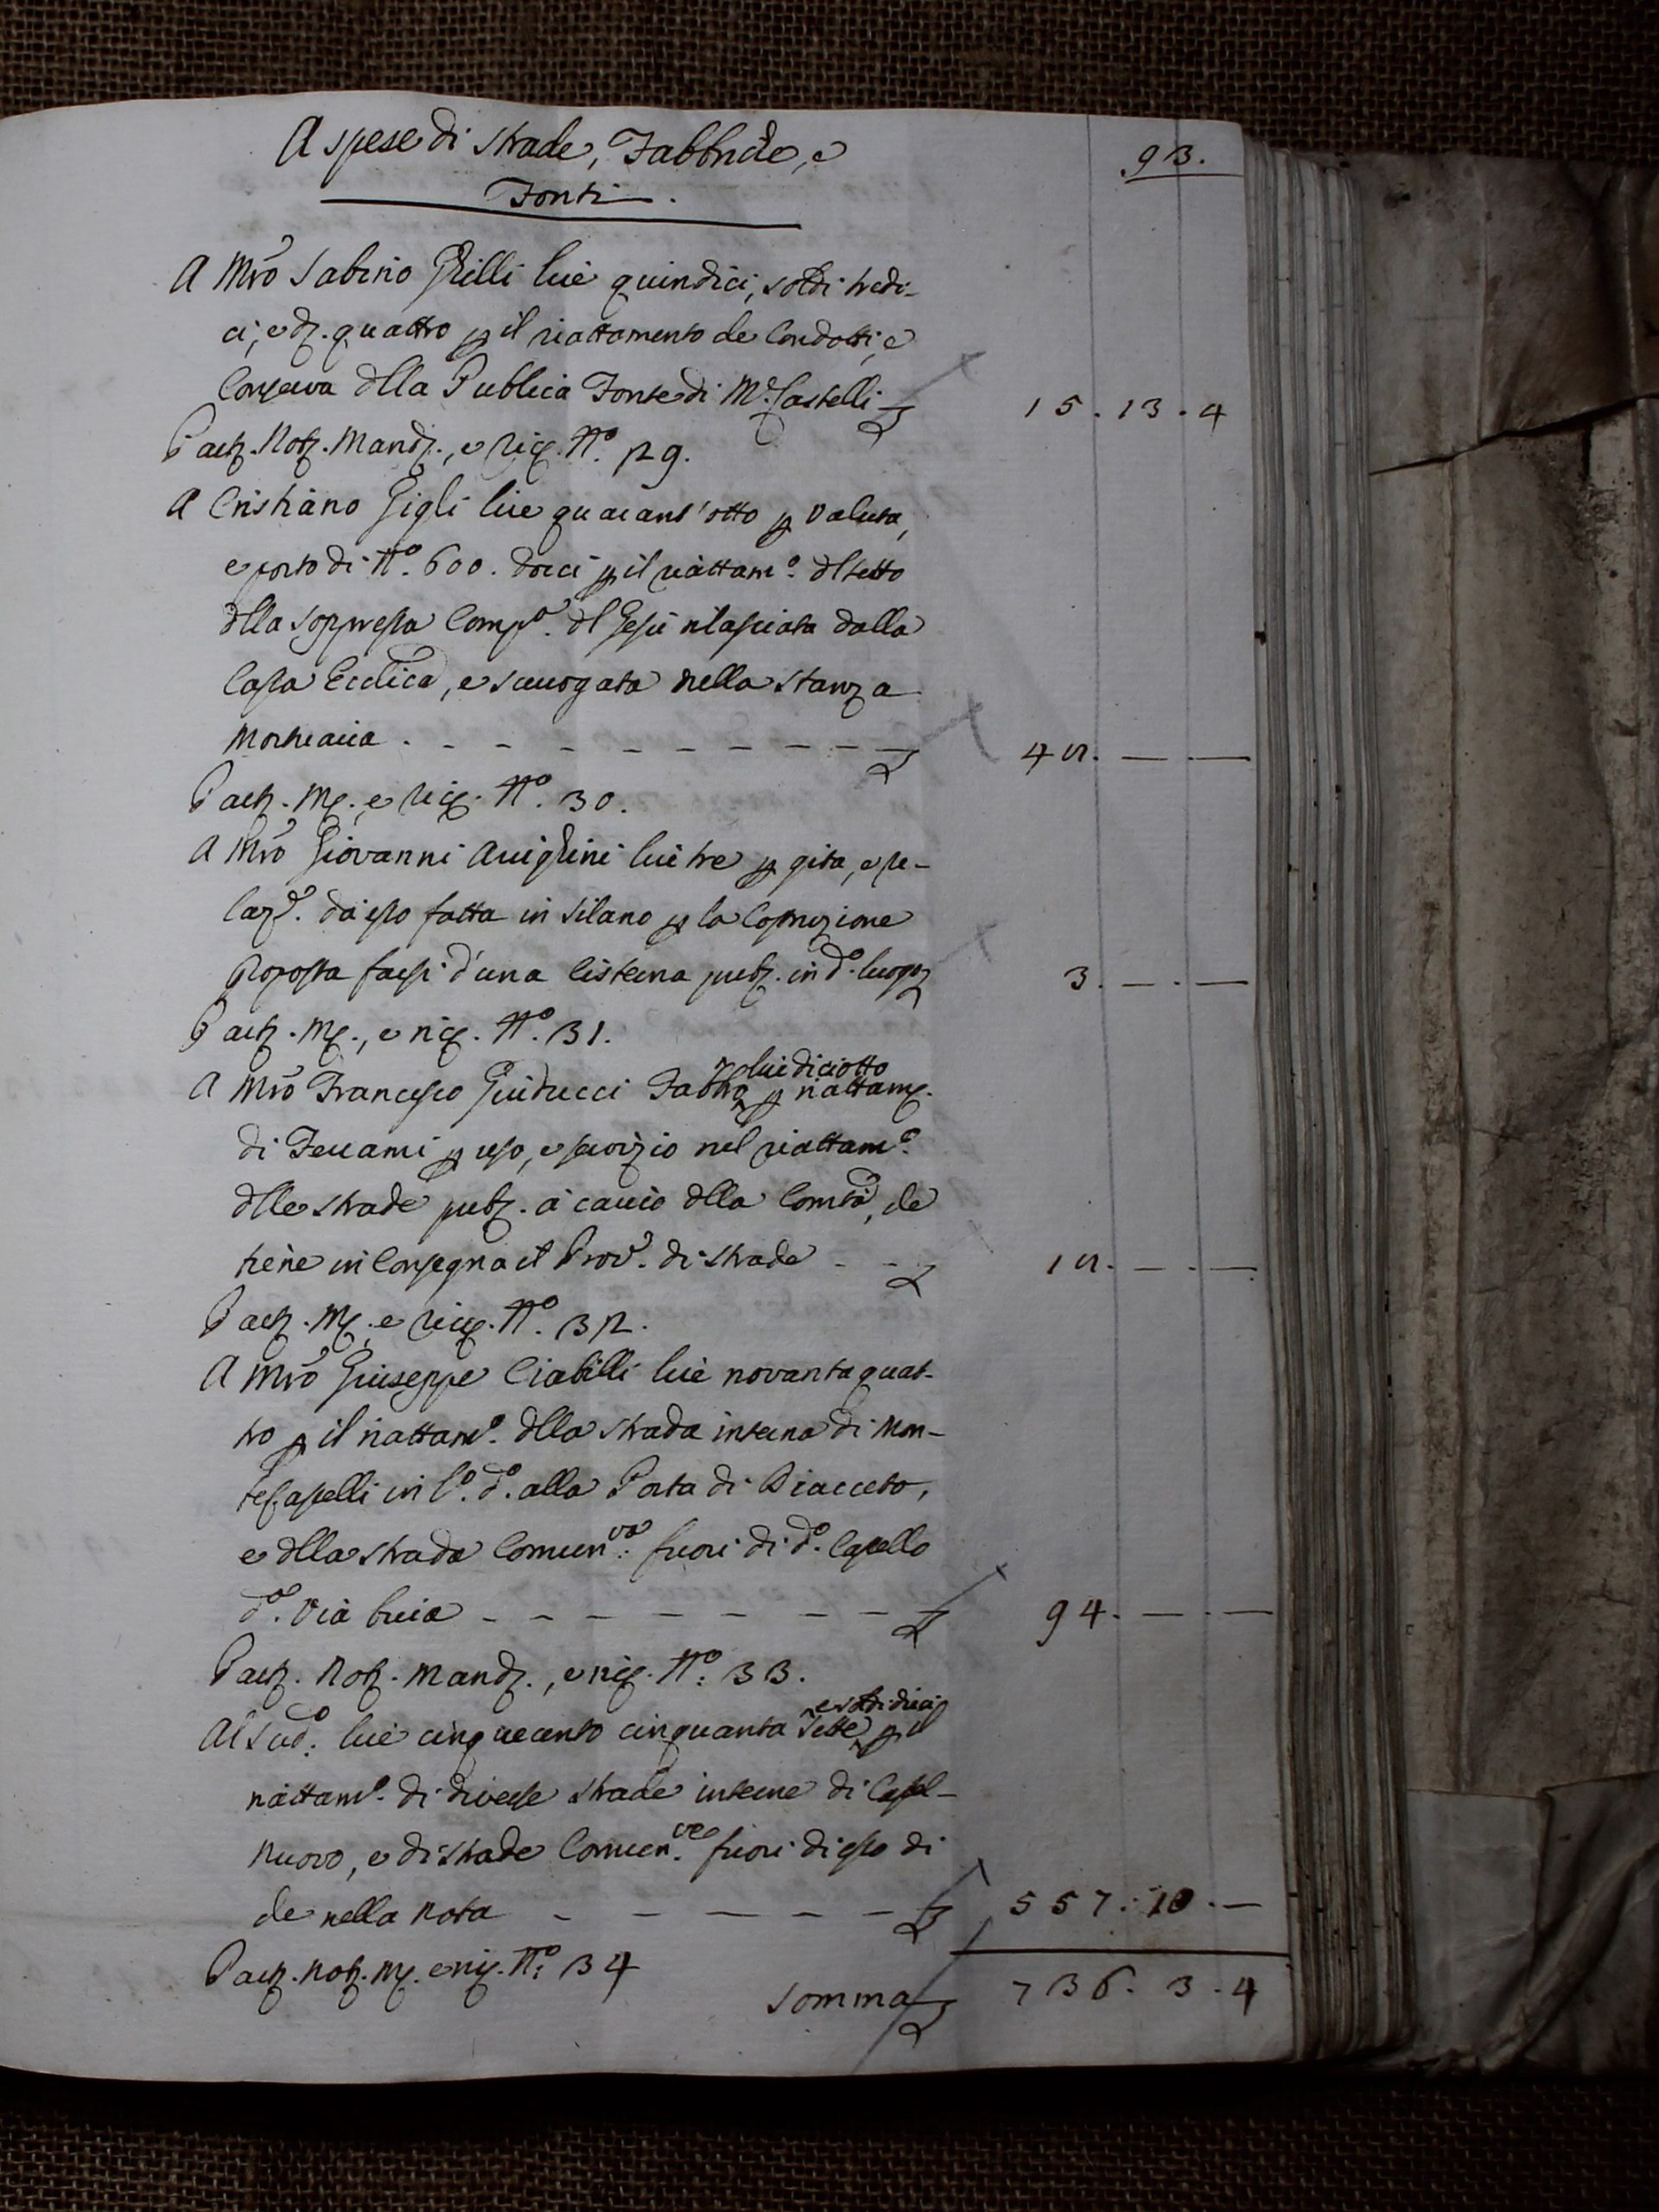 A spese di strade, Fabbriche, e
Fonti.
93.
A Mro Sabino Grilli lire quindici, soldi tredi-
ci, e d. quattro p il riattamento de Condotti, e
Conserva dlla Publica Fonte di M.Castelli 15.13.4
Partz. Notz. Mandz., e ric. No. 29.
A Cristiano Gigli lire quarant'otto p valuta,
e porto di No. 600. docci p il riattamo. dl tetto
dlla soppressa Compa. dl Gesù rilasciata dalla
Cassa Eccl.ca, e surrogata nella stanza
Mortuaria . - - - - - - - - - 48. — . —
Partz. M., e ric. No. 30.
A Mro Giovanni Arrighini lire tre p gita, e re-
laze. da esso fatta in Silano p la Costruzione
proposta farsi d'una Cisterna pubz. in do. luogo 3. — . —
Partz. M., e ric. No. 31.
A Mro Francesco Guiducci Fabbro lire diciotto p riattam.
di Ferrami p uso, e servizio nel riattamo.
dlle strade pubz. a carico dlla Comtà, che
tiene in Consegna il Prove. di strade - - 18. — . —
Partz. M. e ric. No. 32.
A Mro Giuseppe Ciabilli lire novantaquat-
tro p il riattamo. dlla strada interna di Mon-
tecastelli in Lo. do. alla Porta di Diacceto,
e dlla strada Comunva. fuori di do. Castello
da. Via buia - - - - - - - - 94. — . —
Partz. Notz. Mandz., e ric. No. 33.
Al sudo. lire cinquecento cinquanta sette e soldi dieci p il
riattamo. di diverse strade interne di Castel-
nuovo, e di strade Comunve. fuori di esso di
che nella nota - - - - - - 557.10.—
Partz. Notz. M. e ric. No. 34
Somma 736. 3. 4